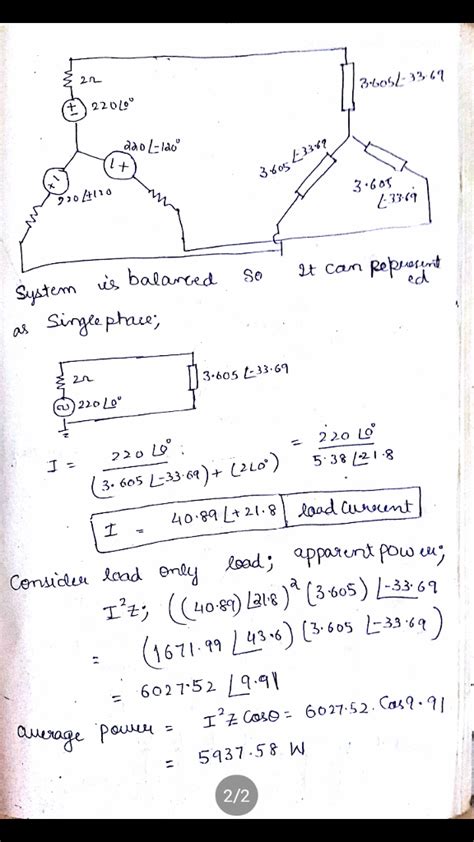 2Ω
220∠0°
3.605∠-33.69
220∠-120°
220∠+120
3.605∠-33.69
3.605
∠-33.69
System is balanced so It can represent
ed
as Single phase;
2Ω
220∠0°
3.605∠-33.69
I = 220∠0° / (3.605∠-33.69)+(2∠0°) = 220∠0° / 5.38∠21.8
I = 40.89∠+21.8 load current
Consider load only load; apparent power;
I²Z; ((40.89)∠21.8)² (3.605)∠-33.69
= (1671.99∠43.6)(3.605∠-33.69)
= 6027.52∠9.91
average power = I²Z Cosθ = 6027.52. Cos9.91
= 5937.58 W
2/2